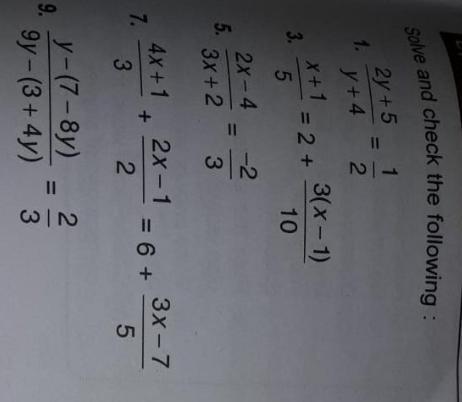 Solve and check the following :
1. (2y + 5)/(y + 4) = 1/2
3. (x + 1)/5 = 2 + 3(x − 1)/10
5. (2x − 4)/(3x + 2) = −2/3
7. (4x + 1)/3 + (2x − 1)/2 = 6 + (3x − 7)/5
9. (y − (7 − 8y))/(9y − (3 + 4y)) = 2/3